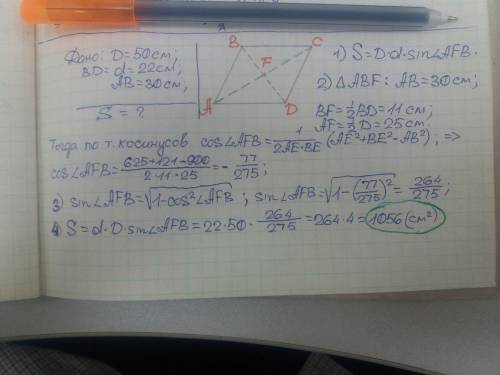 Дано: D=50см;
BD=d=22см;
AB=30см;
S=?
A
B
C
F
A
D
1) S=D·d·sin∠AFB.
2) ΔABF: AB=30см;
BF=½BD=11см;
AF=½D=25см;
Тогда по т. косинусов cos∠AFB=1/2AE·BE (AE²+BE²-AB²); ⇒
cos∠AFB=625+121-900/2·11·25=-77/275;
3) sin∠AFB=√1-cos²∠AFB; sin∠AFB=√1-(77/275)²=264/275;
4) S=d·D·sin∠AFB=22·50·264/275=264·4=1056(см²)